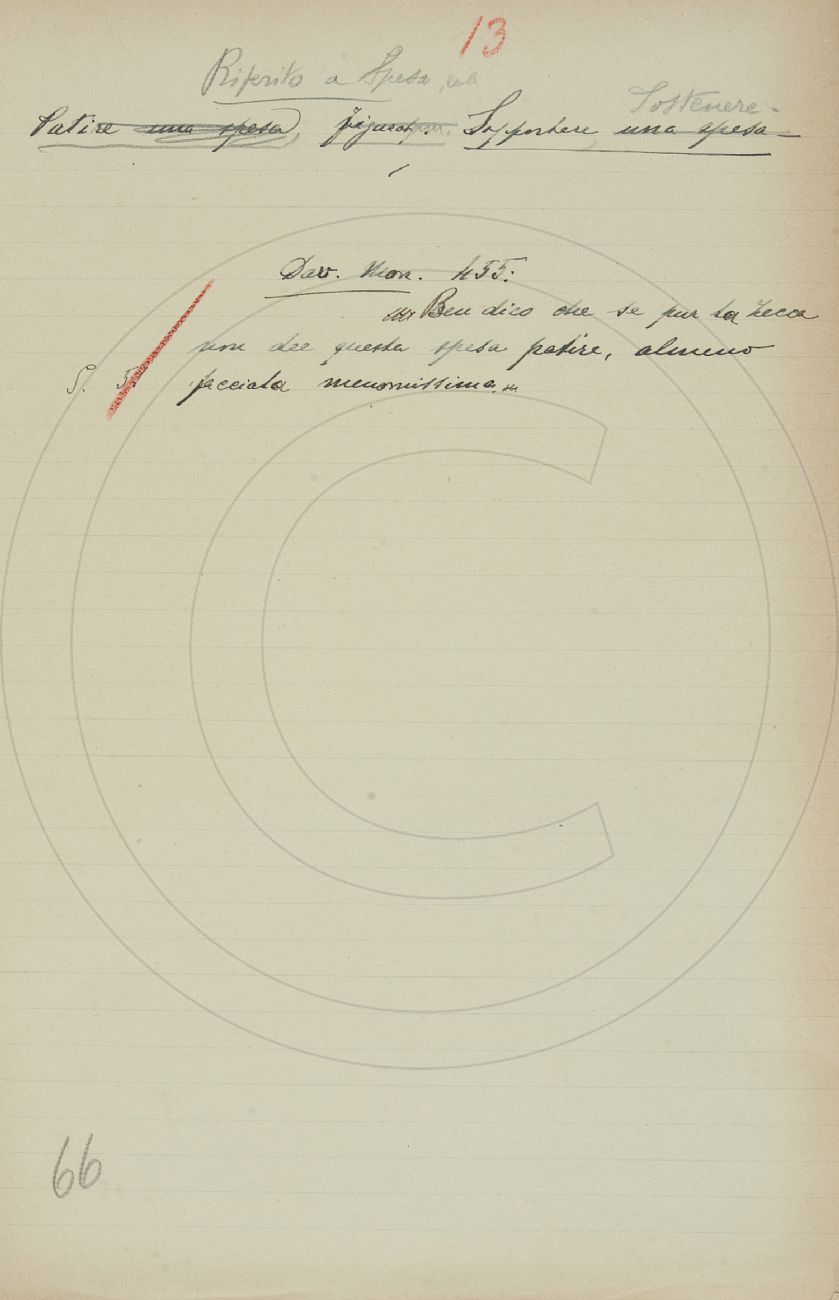 13
Riferito a Spesa,
Sostenere -
Patire una spesa, figurat. Sopportare una spesa -
Dav. Mon. 455:
Ben dico che se pur la zecca
non dee questa spesa patire, almeno
S. 5. facciala menomissima.
66